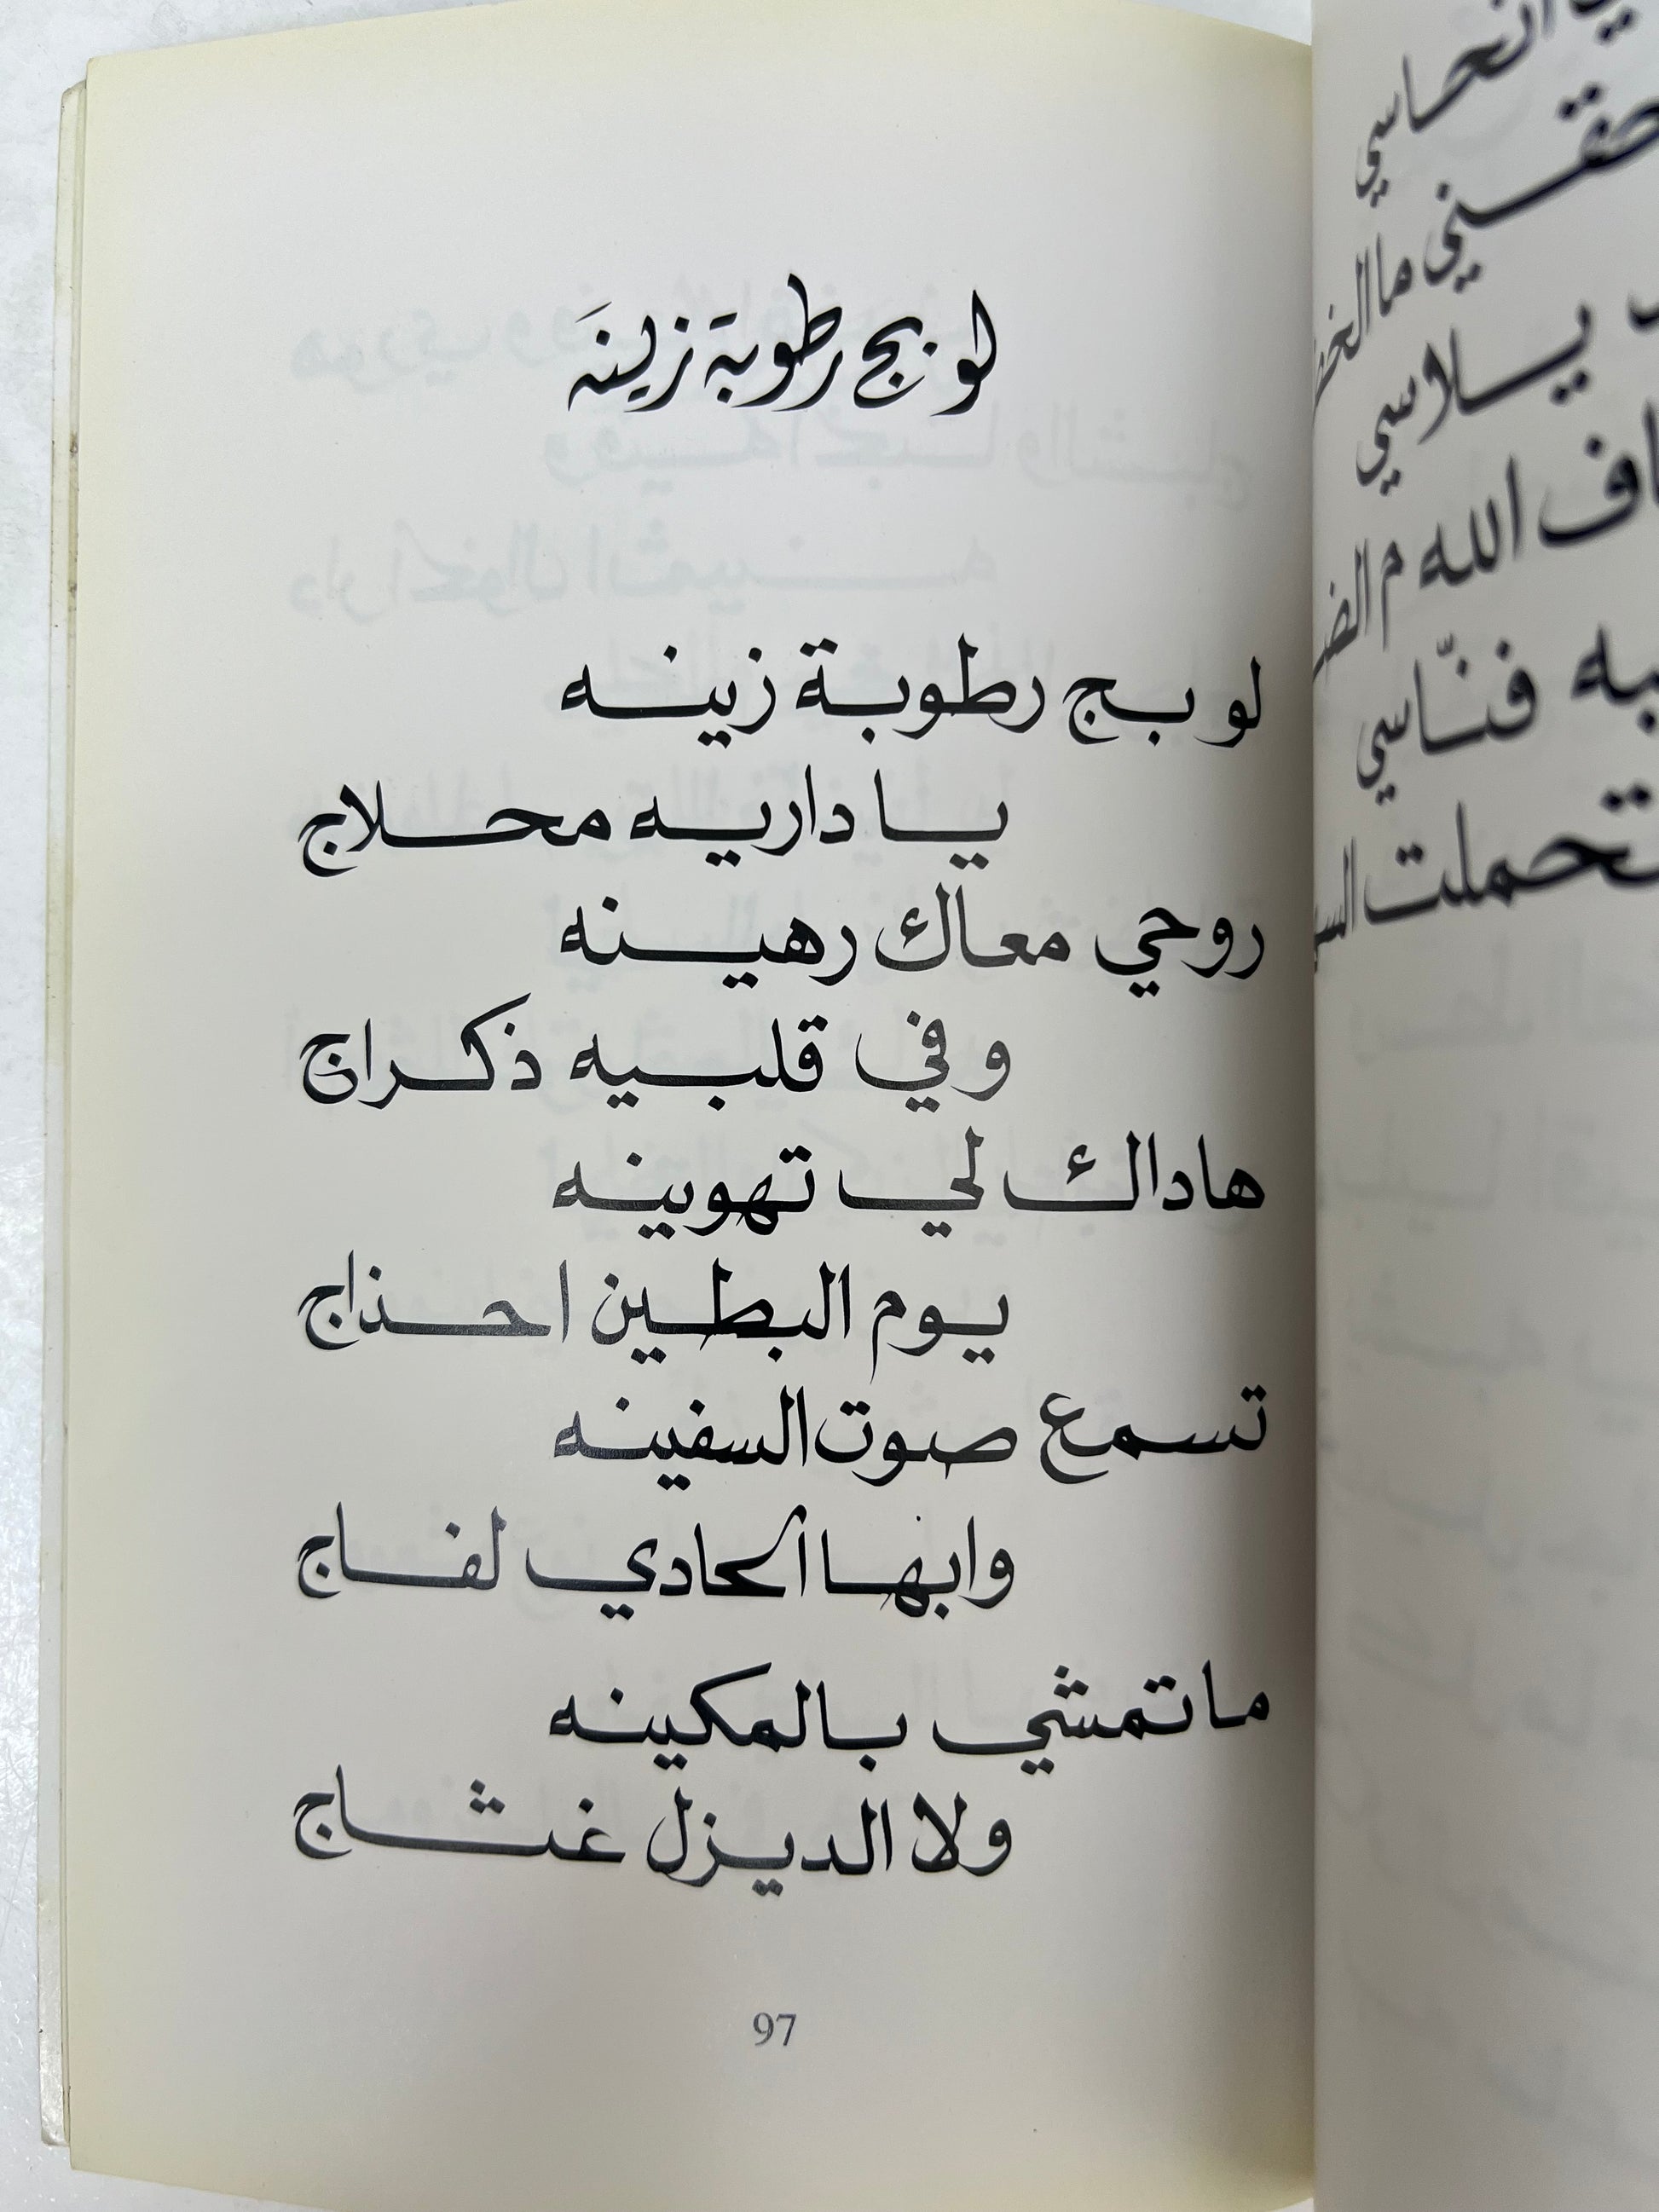 لو بج رطوبة زينه
لو بج رطوبة زينه
يا داريه محلاج
روحي معاك رهينه
وفي قلبيه ذكراج
هاداك لي تهوينه
يوم البطين احذاج
تسمع صوت السفينه
وابها الحادي لفاج
ما تمشي بالمكينه
ولا الديزل غثاج
97
يلاسي
الله م
فنّاسي
تحملت